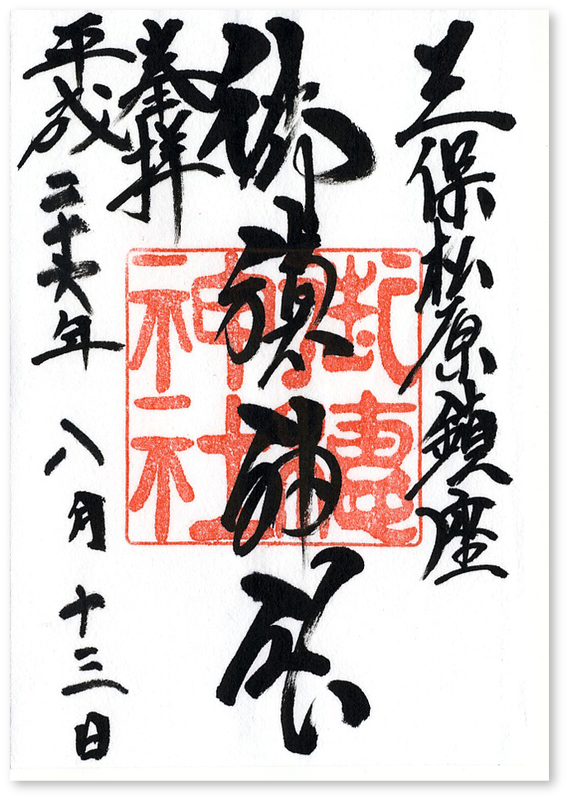 三保松原鎮座
御穂神社
奉拝
平成二十六年八月十三日
御穂
神社